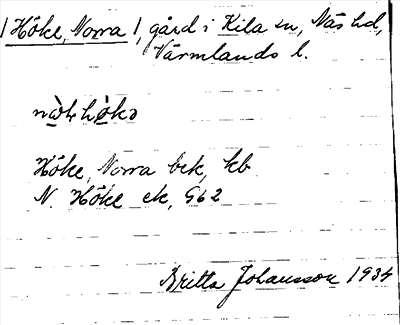 /Höke, Norra/, gård i Kila sn, Näs hd,
Värmlands l.
Höke, Norra bek, kb
N. Höke ek, G62
Britta Johansson 1934